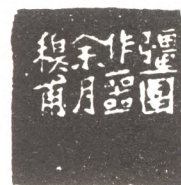 彊圉
作噩
余月
甫